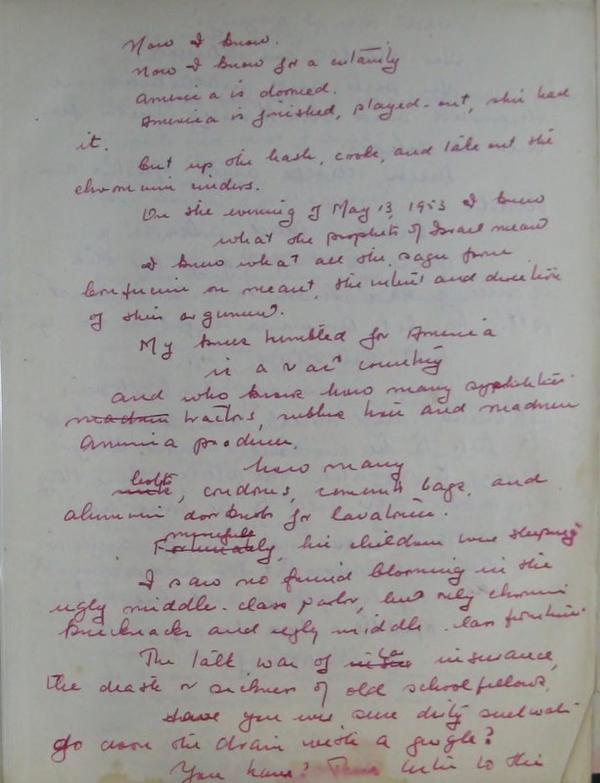 Now I know.
Now I know for a certainty
America is doomed.
America is finished, played-out, she's had
it.
But up the hash, cook, and take out the
chromium cinders.
On the evening of May 13, 1953 I knew
what the prophets of Israel meant
I knew what all the sages from
Confucius on meant, the intent and direction
of their argument.
My knees trembled for America
is a vast country
and who knows how many syphilities
tractors, rubber hose and madmen
America produces.
how many
bolts, condoms, cement bags, and
aluminum doorknobs for lavatories.
Mercifully, his children were sleeping
I saw no fund blooming in the
ugly middle-class parlor, but only chromium
knicknacks and ugly middle-class furniture.
The talk was of insurance,
the death or sickness of old schoolfellows.
Have you ever seen dirty suds
go down the drain with a gurgle?
You have? listen to this